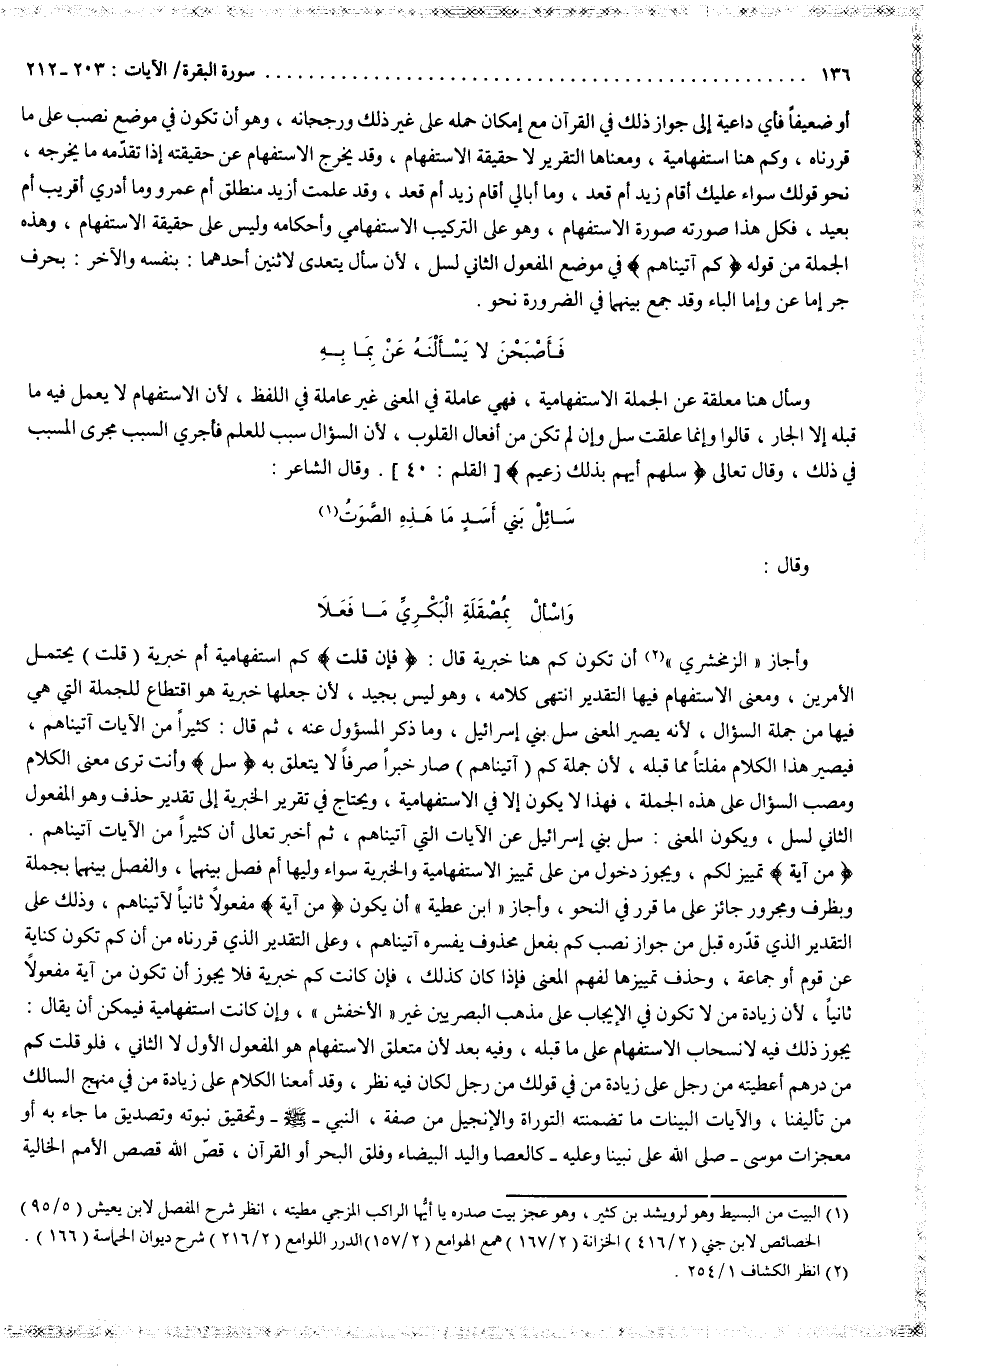 ١٣٦ ........................................................ سورة البقرة/ الآيات : ٢٠٣ ـ ٢١٢
أو ضعيفاً فأي داعية إلى جواز ذلك في القرآن مع إمكان حمله على غير ذلك ورجحانه ، وهو أن تكون في موضع نصب على ما
قررناه ، وكم هنا استفهامية ، ومعناها التقرير لا حقيقة الاستفهام ، وقد يخرج الاستفهام عن حقيقته إذا تقدّمه ما يخرجه ،
نحو قولك سواء عليك أقام زيد أم قعد ، وما أبالي أقام زيد أم قعد ، وقد علمت أزيد منطلق أم عمرو وما أدري أقريب أم
بعيد ، فكل هذا صورته صورة الاستفهام ، وهو على التركيب الاستفهامي وأحكامه وليس على حقيقة الاستفهام ، وهذه
الجملة من قوله ﴿ كم آتيناهم ﴾ في موضع المفعول الثاني لسل ، لأن سأل يتعدى لاثنين أحدهما : بنفسه والآخر : بحرف
جر إما عن وإما الباء وقد جمع بينهما في الضرورة نحو .
فَـأَصْبَحْنَ لا يَسْـأَلْنَـهُ عَنْ بِمَـا بِــهِ
وسأل هنا معلقة عن الجملة الاستفهامية ، فهي عاملة في المعنى غير عاملة في اللفظ ، لأن الاستفهام لا يعمل فيه ما
قبله إلا الجار ، قالوا وإنما علقت سل وإن لم تكن من أفعال القلوب ، لأن السؤال سبب للعلم فأجري السبب مجرى المسبب
في ذلك ، وقال تعالى ﴿ سلهم أيهم بذلك زعيم ﴾ [ القلم : ٤٠ ] . وقال الشاعر :
سَـائِلْ بَنِي أَسَـدٍ مَا هَـذِهِ الصَّوَتُ(١)
وقال :
وَاسْألْ بِمُصْقَلَةِ الْبَكْرِيِّ مَــا فَعَـلَا
وأجاز « الزمخشري »(٢) أن تكون كم هنا خبرية قال : ﴿ فإن قلت ﴾ كم استفهامية أم خبرية ( قلت ) يحتمـل
الأمرين ، ومعنى الاستفهام فيها التقدير انتهى كلامه ، وهو ليس بجيد ، لأن جعلها خبرية هو اقتطاع للجملة التي هي
فيها من جملة السؤال ، لأنه يصير المعنى سل بني إسرائيل ، وما ذكر المسؤول عنه ، ثم قال : كثيراً من الآيات آتيناهم ،
فيصير هذا الكلام مفلتاً مما قبله ، لأن جملة كم ( آتيناهم ) صار خبراً صرفاً لا يتعلق به ﴿ سل ﴾ وأنت ترى معنى الكلام
ومصب السؤال على هذه الجملة ، فهذا لا يكون إلا في الاستفهامية ، ويحتاج في تقرير الخبرية إلى تقدير حذف وهو المفعول
الثاني لسل ، ويكون المعنى : سل بني إسرائيل عن الآيات التي آتيناهم ، ثم أخبر تعالى أن كثيراً من الآيات آتيناهم .
﴿ من آية ﴾ تمييز لكم ، ويجوز دخول من على تمييز الاستفهامية والخبرية سواء وليها أم فصل بينهما ، والفصل بينهما بجملة
وبظرف ومجرور جائز على ما قرر في النحو ، وأجاز « ابن عطية » أن يكون ﴿ من آية ﴾ مفعولاً ثانياً لآتيناهم ، وذلك على
التقدير الذي قدّره قبل من جواز نصب كم بفعل محذوف يفسره آتيناهم ، وعلى التقدير الذي قررناه من أن كم تكون كناية
عن قوم أو جماعة ، وحذف تمييزها لفهم المعنى فإذا كان كذلك ، فإن كانت كم خبرية فلا يجوز أن تكون من آية مفعولاً
ثانياً ، لأن زيادة من لا تكون في الإيجاب على مذهب البصريين غير « الأخفش » ، وإن كانت استفهامية فيمكن أن يقال :
يجوز ذلك فيه لانسحاب الاستفهام على ما قبله ، وفيه بعد لأن متعلق الاستفهام هو المفعول الأول لا الثاني ، فلو قلت كم
من درهم أعطيته من رجل على زيادة من في قولك من رجل لكان فيه نظر ، وقد أمعنا الكلام على زيادة من في منهج السالك
من تأليفنا ، والآيات البينات ما تضمنته التوراة والإنجيل من صفة ، النبي ـ ﷺ ـ وتحقيق نبوته وتصديق ما جاء به أو
معجزات موسى ـ صلى الله على نبينا وعليه ـ كالعصا واليد البيضاء وفلق البحر أو القرآن ، قصّ الله قصص الأمم الخالية
(١) البيت من البسيط وهو لرويشد بن كثير ، وهو عجز بيت صدره يا أيُّها الراكب المزجي مطيته ، انظر شرح المفصل لابن يعيش ( ٩٥/٥ )
الخصائص لابن جني ( ٤١٦/٢ ) الخزانة ( ١٦٧/٢ ) همع الهوامع ( ١٥٧/٢ ) الدرر اللوامع ( ٢١٦/٢ ) شرح ديوان الحماسة ( ١٦٦ ) .
(٢) انظر الكشاف ٢٥٤/١ .